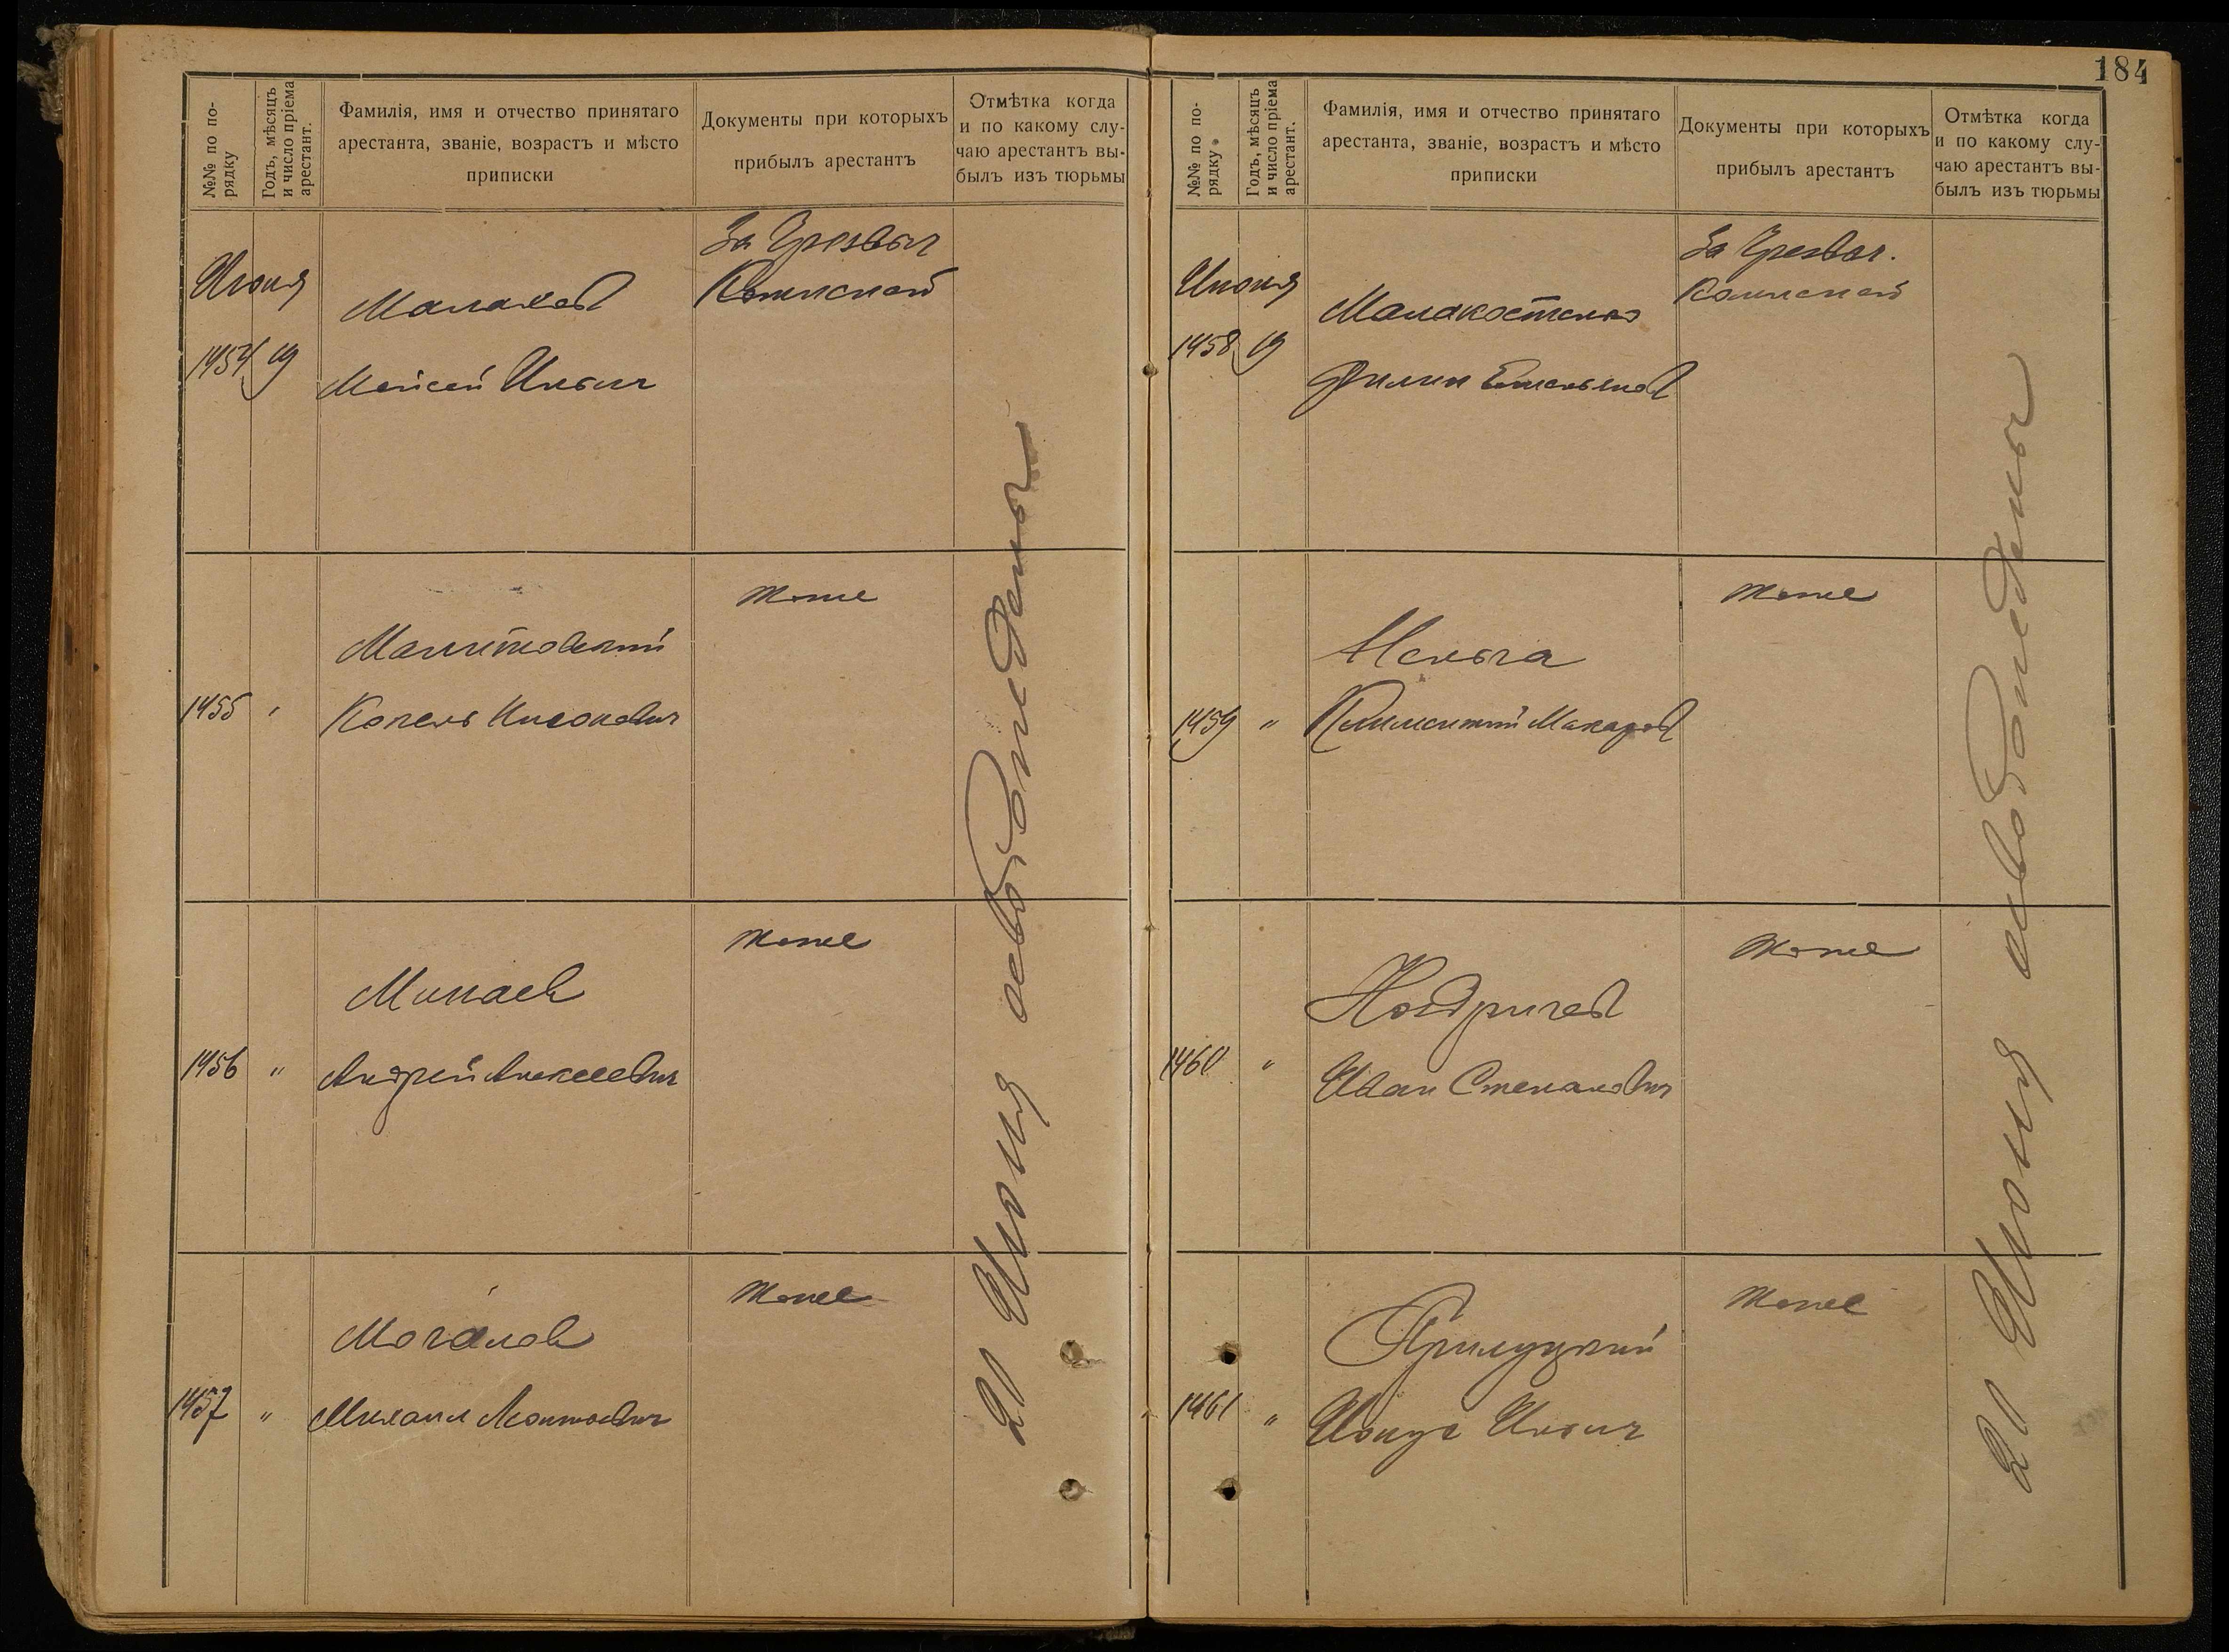 184
№№ по по-
рядку
Годъ, мѣсяцъ
и число пріема
арестант.
Фамилія, имя и отчество принятаго
арестанта, званіе, возрастъ и мѣсто
приписки
Документы при которыхъ
прибылъ арестантъ
Отмѣтка когда
и по какому слу-
чаю арестантъ вы-
былъ изъ тюрьмы
Июня
1454 19
Малахов
Мойсей Ильич
За Чрезвыч
Комиссией
1455 "
Манитовский
Копель
тоже
1456 "
Минаев
Андрей Алексеевич
тоже
1457 "
Мочалов
Михаил
тоже
20 Июня освобождены
№№ по по-
рядку
Годъ, мѣсяцъ
и число пріема
арестант.
Фамилія, имя и отчество принятаго
арестанта, званіе, возрастъ и мѣсто
приписки
Документы при которыхъ
прибылъ арестантъ
Отмѣтка когда
и по какому слу-
чаю арестантъ вы-
былъ изъ тюрьмы
Июня
1458 19
Малакостенко
Филип Емельянов
За Чрезвыч.
Комиссией
1459 "
Климентий Макаров
тоже
1460 "
Ноздричев
Иван Степанович
тоже
1461 "
Прилуцкий
Ильич
тоже
20 Июня освобождены